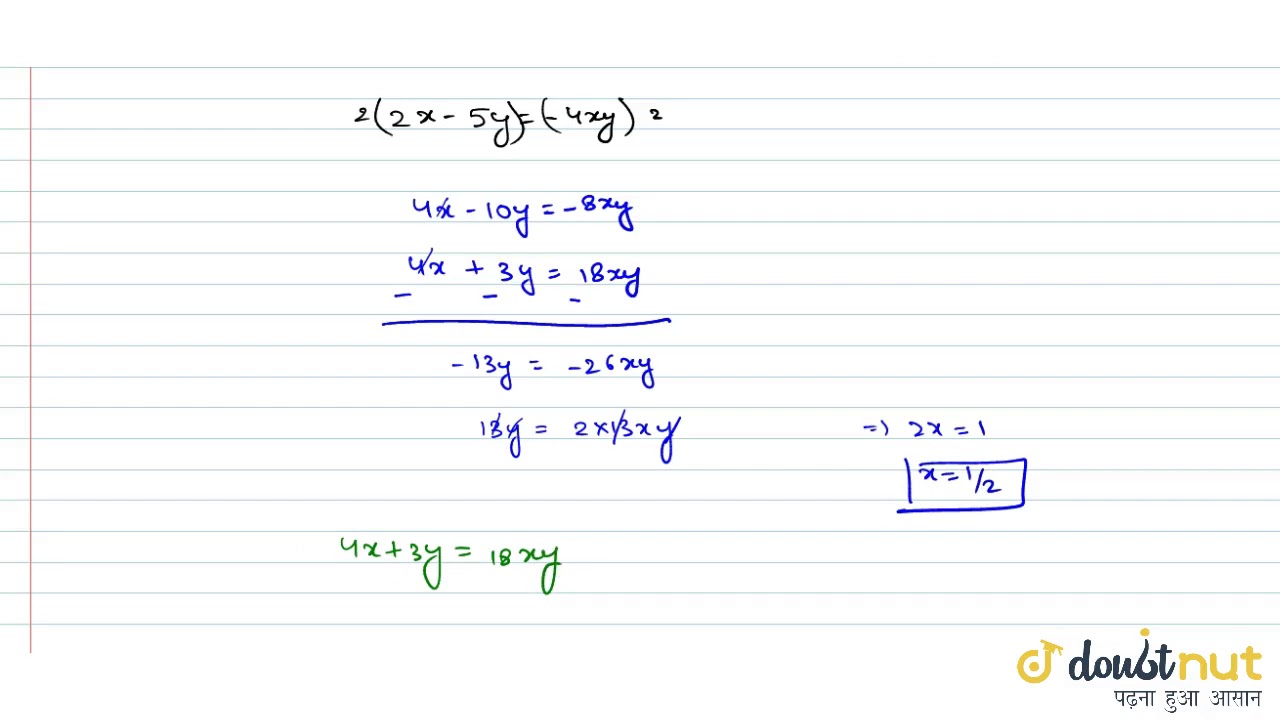 2(2x - 5y) = (-4xy) 2
4x - 10y = -8xy
4x + 3y = 18xy
- - -
-13y = -26xy
13y = 2x13xy
=> 2x = 1
x = 1/2
4x + 3y = 18xy
doubtnut
पढ़ना हुआ आसान